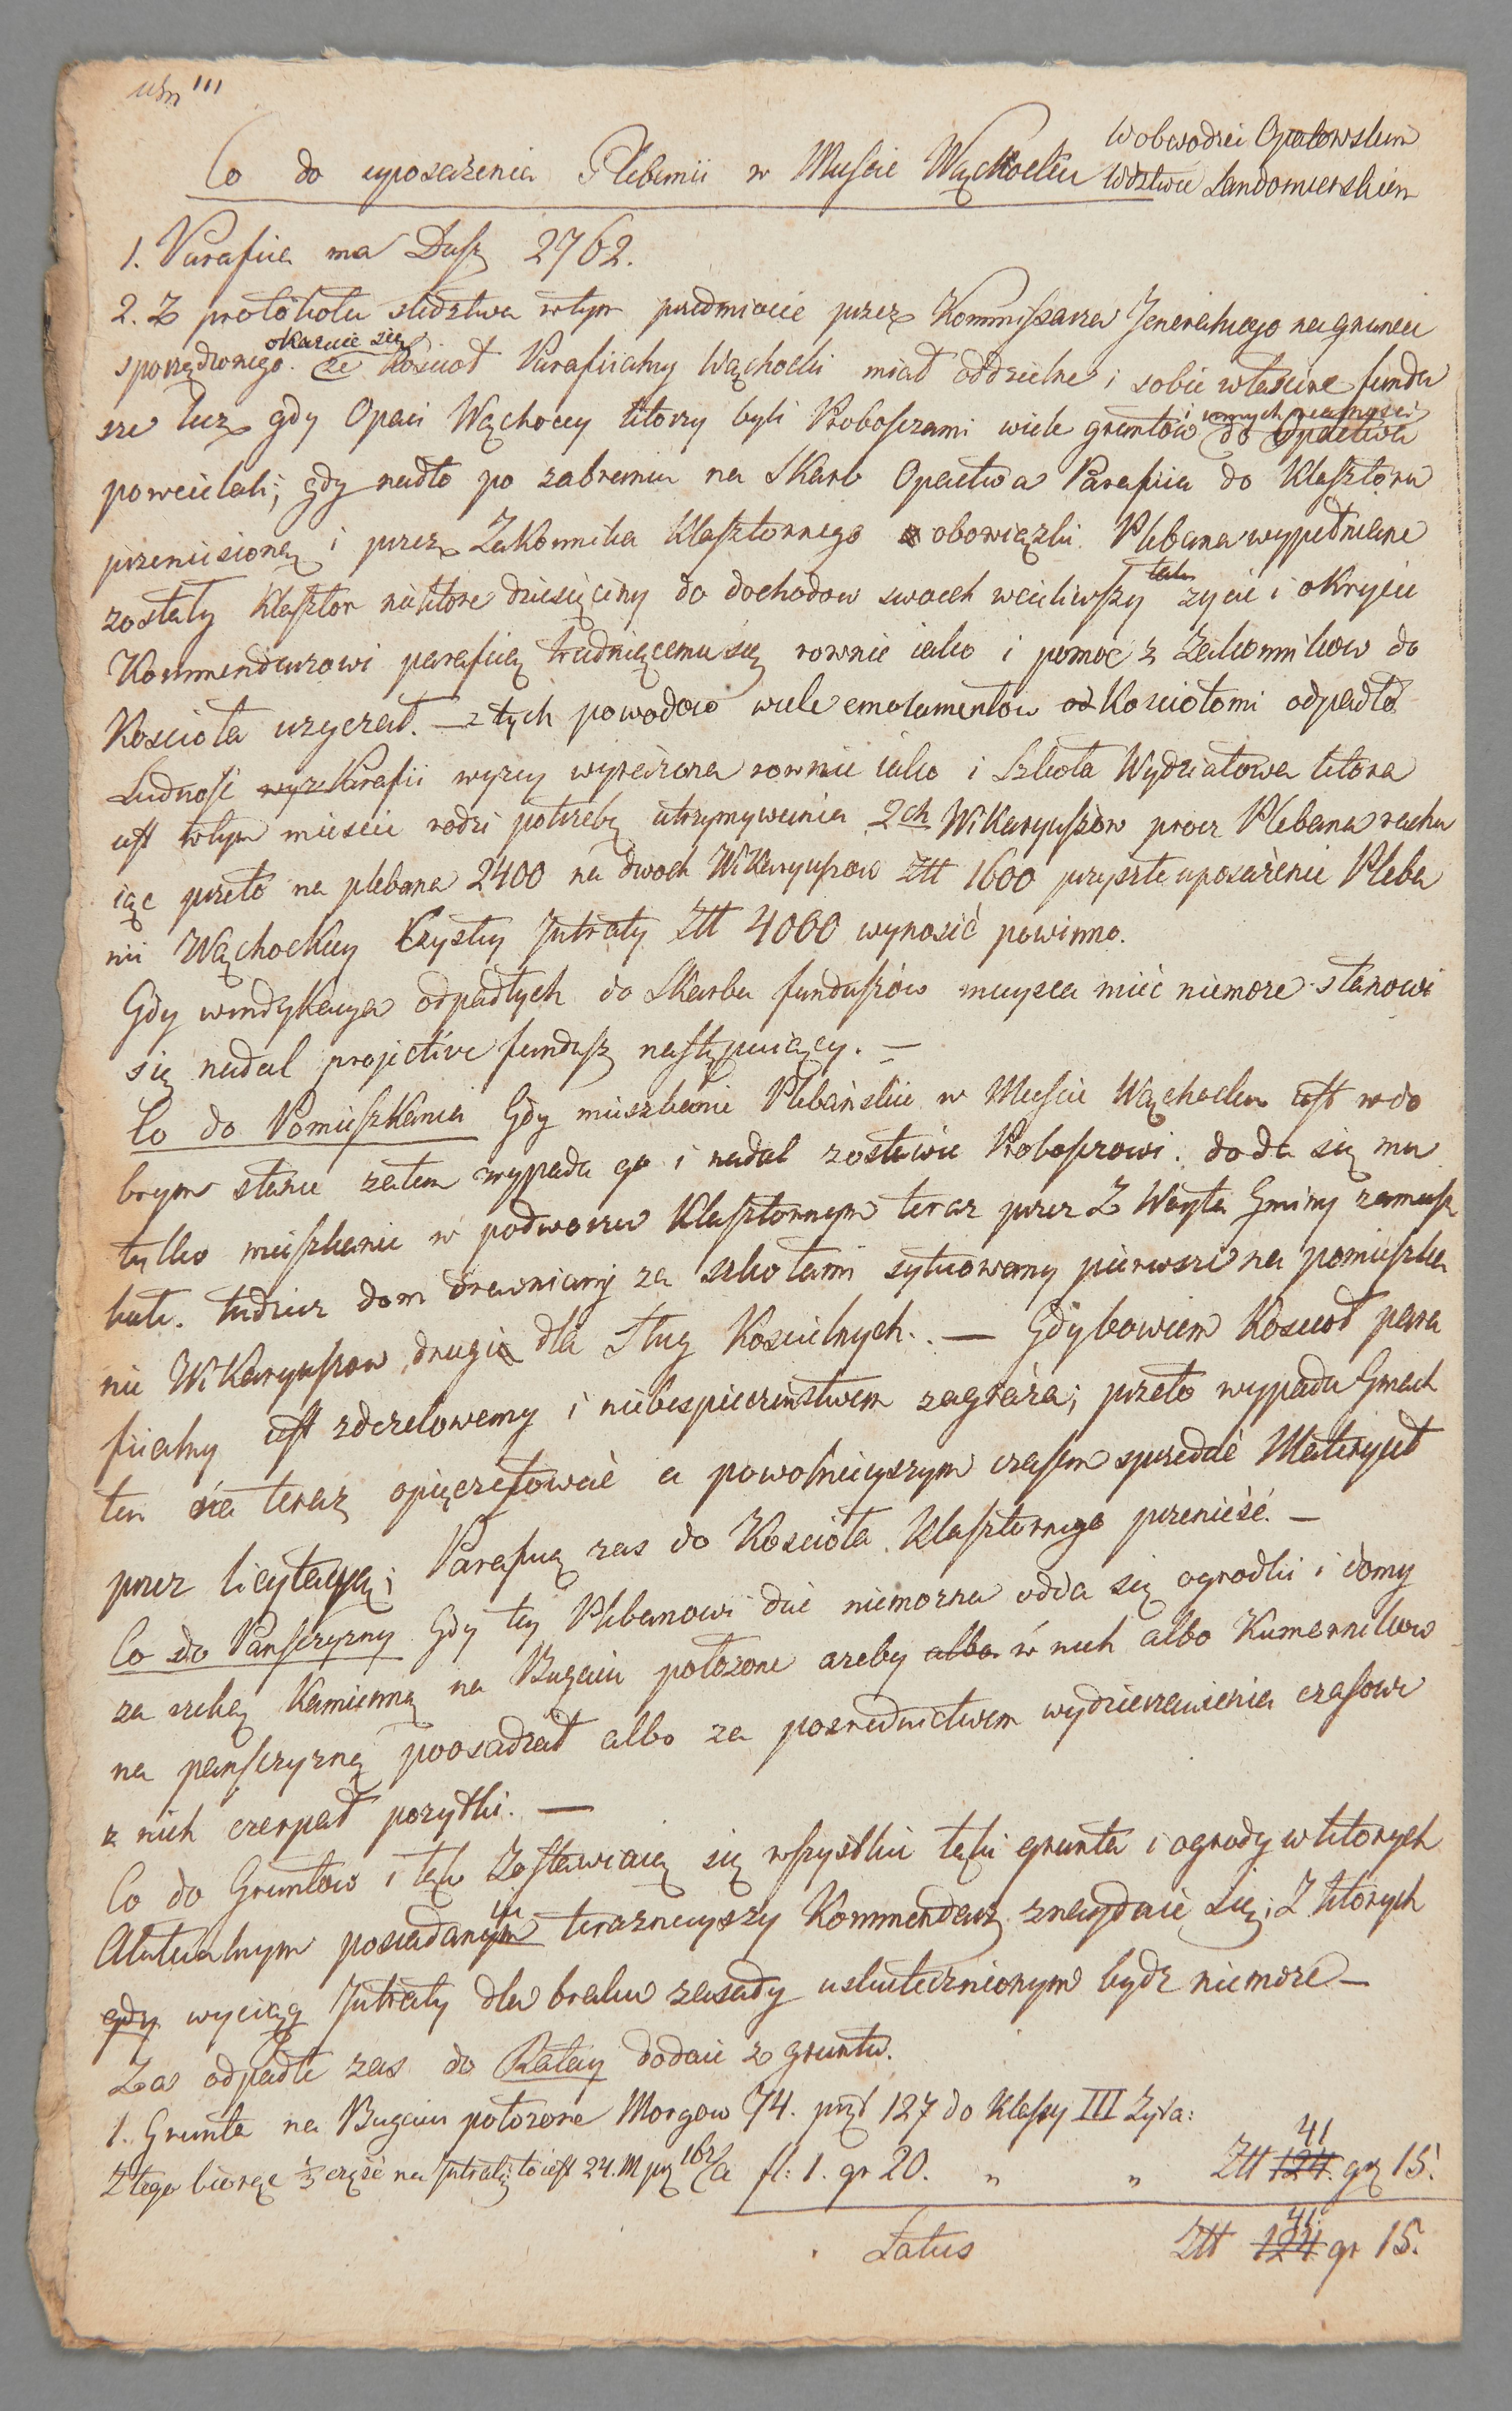 Co do uposażenia Plebanii w Mieście Wąchocku w obwodzie Opatowskim
Wdztwie Sandomierskiem
1. Parafiia ma Dusz 2762.
2. Z protokołu sledztwa wtym przedmiocie przez Kommissarza Jeneralnego na gruncie
sporządzonego okazuie się że Kościoł Parafiialny Wąchocki miał oddzielne i sobie własciwe fundu
sze lecz gdy Opaci Wąchoccy ktorzy byli Proboszczami wiele gruntów i innych do Opactwa
powcielali; gdy nadto po zabraniu na Skarb Opactwa Parafiia do Klasztoru
przeniesioną i przez Zakonnika Klasztornego obowiązki Plebana wypełniane
zostały Klasztor niektore dziesięciny do dochodow swoich wcieliwszy tak zycie i okrycie
Kommendarzowi parafiią trudniącemu się rownie iako i pomoc z Zakonnikow do
Kościoła uzyczał. — z tych powodow wiele emolumentow od Kościołowi odpadło
Ludność wyz Parafii wyzey wyrażona rownie iako i Szkoła Wydziałowa ktora
iest wtym mieście rodzi potrzebę utrzymywania 2ch Wikaryuszow procz Plebana rachu
iąc przeto na plebana 2400 na dwoch Wikaryuszow Złł 1600 przyszłe uposażenie Pleba
nii Wąchockiey Czystey Intraty Złł 4000 wynosić powinno.
Gdy windykacya odpadłych do Skarbu funduszów mieysca mieć niemoze stanowi
się nadal projective fundusz następuiący. —
Co do Pomieszkania Gdy mieszkanie Plebańskie w Mieście Wąchocku iest w do
brym stanie zatem wypada go i nadal zostawić Proboszczowi. doda się mu
tylko mieszkanie w podworzu Klasztornym teraz przez Z Woyta Gminy zamiesz
kałe. tudziez dom drewniany za szkołami sytuowany pierwsze na pomieszka
nie Wikaryuszow, drugie dla Sług Kościelnych. — Gdy bowiem Kościoł para
fiialny iest zdezelowany i niebespieczeństwem zagraża; przeto wypada Gmach
ten na teraz opieczętować a powolnieyszym czasem sprzedać Materyał
przez licytacyą; Parafiią zas do Kościoła Klasztornego przenieść. —
Co do Panszczyzny Gdy tey Plebanowi dać niemozna odda się ogrodki i domy
za rzeką Kamienną na Bugaiu położone azeby albo w nich albo Kumornikow
na panszczyznę poosadzał albo za posrednictwem wydzierzawienia czasowe
z nich czerpał pozytki. —
Co do Gruntow i łąk Zostawiaią się wszystkie łąki grunta i ogrody w ktorych
Aktualnym posiadaniu teraznieyszy Kommendarz znayduie się; Z ktorych
gdy wyciąg Intraty dla braku zasady uskutecznionym bydz niemoze —
Za odpadłe zas do dodaie z gruntu.
1. Grunta na Bugaiu położone Morgow 74. pręt 127 do Klassy III Zyta:
Z tego biorąc ⅓ część na Intratę to iest 24. M prę 162 a fl: 1. gr 20. " " Złł 124 41 gr 15.
Latus Złł 124 41 gr 15.